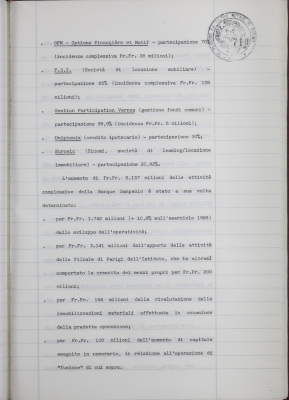 . OFM - Options Financière et Matif - partecipazione 70%
(incidenza complessiva Fr.Fr. 38 milioni);
. (Società di locazione mobiliare) -
partecipazione (incidenza complessiva Fr.Fr.
milioni);
. Gestion Participation Vernes (gestione fondi comuni) -
partecipazione (incidenza Fr.Fr. 5 milioni);
. (credito ipotecario) - partecipazione
. (Sicomi, società di leasing/locazione
immobiliare) - partecipazione
L'aumento di Fr.Fr. 5.137 milioni delle attività
complessive della Banque Sanpaolo è stato a sua volta
determinato:
- per Fr.Fr. 1.742 milioni (+ sull'esercizio 1988)
dallo sviluppo dell'operatività;
- per Fr.Fr. 3.141 milioni dall'apporto delle attività
della Filiale di Parigi dell'Istituto, che ha altresì
comportato la crescita dei mezzi propri per Fr.Fr. 200
milioni;
- per Fr.Fr. 154 milioni dalla rivalutazione delle
immobilizzazioni materiali effettuata in occasione
della predetta operazione;
- per Fr.Fr. 100 milioni dall'aumento di capitale
eseguito in numerario, in relazione all'operazione di
"fusione" di cui sopra.